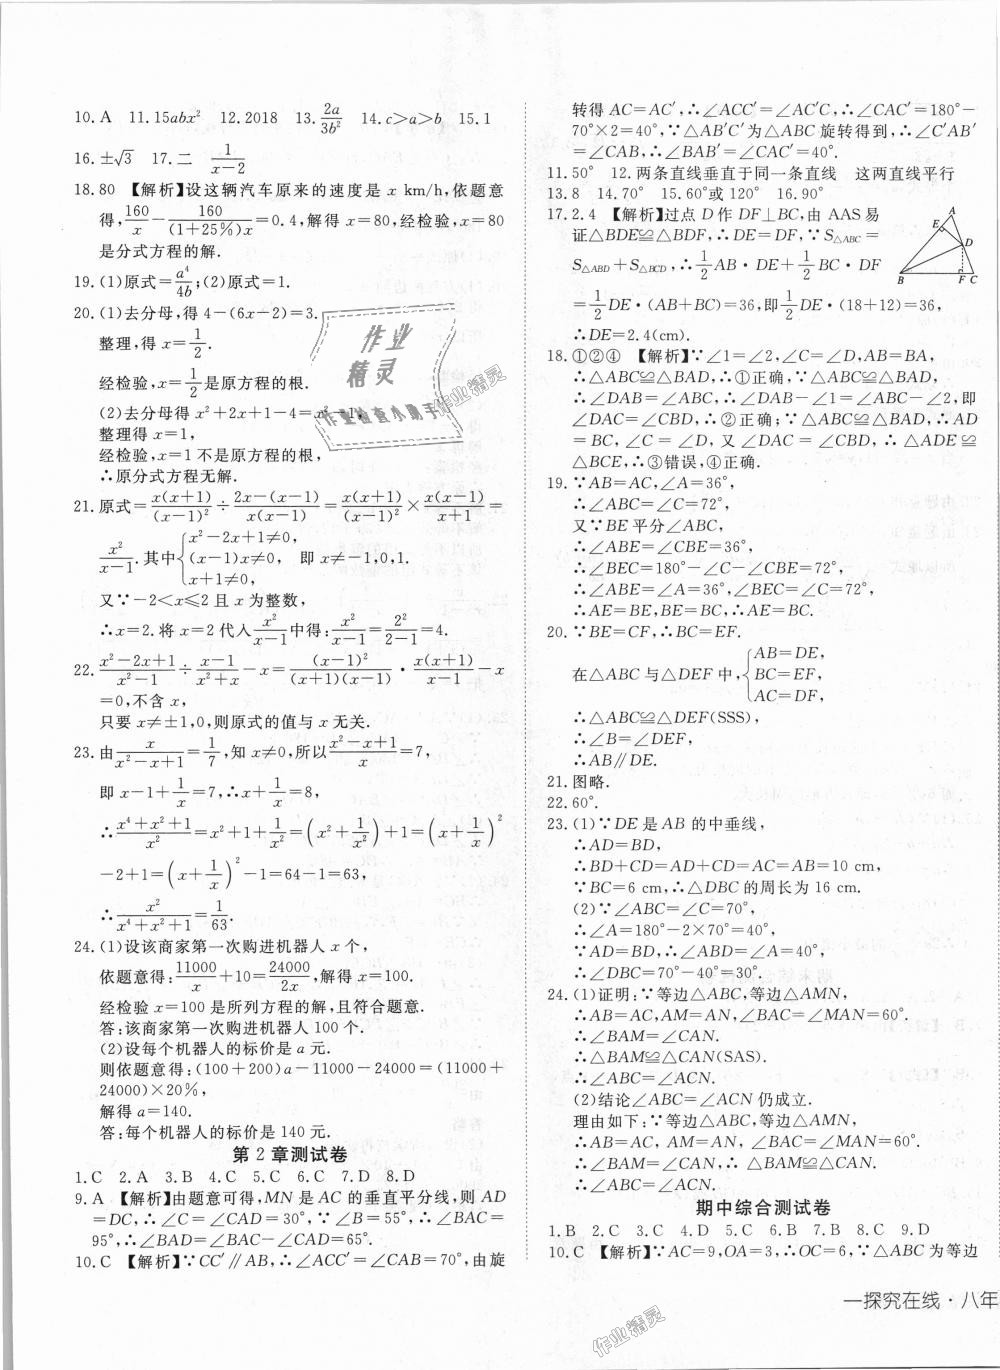 10.A 11.15abx² 12.2018 13.2a/3b² 14.c>a>b 15.1
16.±√3 17.二 1/(x-2)
18.80 【解析】设这辆汽车原来的速度是 x km/h,依题意
得,160/x-160/((1+25%)x)=0.4,解得 x=80,经检验,x=80
是分式方程的解.
19.(1)原式=a⁴/4b;(2)原式=1.
20.(1)去分母,得 4-(6x-2)=3.
整理,得 x=1/2.
经检验,x=1/2是原方程的根.
(2)去分母得 x²+2x+1-4=x²-1,
整理得 x=1,
经检验,x=1 不是原方程的根.
∴原分式方程无解.
21.原式=x(x+1)/(x-1)²÷(2x-(x-1))/(x(x-1))=x(x+1)/(x-1)²×x(x-1)/(x+1)=
x²/(x-1).其中{x²-2x+1≠0, (x-1)x≠0, x+1≠0, 即 x≠-1,0,1.
又∵-2<x≤2 且 x 为整数,
∴x=2.将 x=2 代入x²/(x-1)中得:x²/(x-1)=2²/(2-1)=4.
22.(x²-2x+1)/(x²-1)÷(x-1)/(x²+x)-x=(x-1)²/((x+1)(x-1))·x(x+1)/(x-1)-x
=0,不含 x,
只要 x≠±1,0,则原式的值与 x 无关.
23.由x/(x²-x+1)=1/7,知 x≠0,所以(x²-x+1)/x=7,
即 x-1+1/x=7,∴x+1/x=8,
∴(x⁴+x²+1)/x²=x²+1+1/x²=(x²+1/x²)+1=(x+1/x)²
-2+1=(x+1/x)²-1=64-1=63,
∴x²/(x⁴+x²+1)=1/63.
24.(1)设该商家第一次购进机器人 x 个,
依题意得:11000/x+10=24000/2x,解得 x=100.
经检验 x=100 是所列方程的解,且符合题意.
答:该商家第一次购进机器人 100 个.
(2)设每个机器人的标价是 a 元.
则依题意得:(100+200)a-11000-24000=(11000+
24000)×20%,
解得 a=140.
答:每个机器人的标价是 140 元.
第 2 章测试卷
1.C 2.A 3.B 4.C 5.C 6.C 7.D 8.D
9.A 【解析】由题意可得,MN 是 AC 的垂直平分线,则 AD
=DC,∴∠C=∠CAD=30°,∵∠B=55°,∴∠BAC=
95°,∴∠BAD=∠BAC-∠CAD=65°.
10.C 【解析】∵CC′∥AB,∴∠ACC′=∠CAB=70°,由旋
转得 AC=AC′,∴∠ACC′=∠AC′C,∴∠CAC′=180°-
70°×2=40°,∵△AB′C′为△ABC 旋转得到,∴∠C′AB′
=∠CAB,∴∠BAB′=∠CAC′=40°.
11.50° 12.两条直线垂直于同一条直线 这两直线平行
13.8 14.70° 15.60°或 120° 16.90°
17.2.4 【解析】过点 D 作 DF⊥BC,由 AAS 易
证△BDE≌△BDF,∴DE=DF,∵S△ABC=
S△ABD+S△BCD,∴1/2AB·DE+1/2BC·DF
=1/2DE·(AB+BC)=36,即1/2DE·(18+12)=36,
∴DE=2.4(cm).
A
E
D
B
F C
18.①②④ 【解析】∵∠1=∠2,∠C=∠D,AB=BA,
∴△ABC≌△BAD,∴①正确,∵△ABC≌△BAD,
∴∠DAB=∠ABC,∴∠DAB-∠1=∠ABC-∠2,即
∠DAC=∠CBD,∴②正确;∵△ABC≌△BAD,∴AD
=BC,∠C=∠D,又∠DAC=∠CBD,∴△ADE≌
△BCE,∴③错误,④正确.
19.∵AB=AC,∠A=36°,
∴∠ABC=∠C=72°,
又∵BE 平分∠ABC,
∴∠ABE=∠CBE=36°,
∴∠BEC=180°-∠C-∠CBE=72°,
∴∠ABE=∠A=36°,∠BEC=∠C=72°,
∴AE=BE,BE=BC,∴AE=BC.
20.∵BE=CF,∴BC=EF.
在△ABC 与△DEF 中,{AB=DE, BC=EF, AC=DF,
∴△ABC≌△DEF(SSS),
∴∠B=∠DEF,
∴AB∥DE.
21.图略.
22.60°.
23.(1)∵DE 是 AB 的中垂线,
∴AD=BD,
∴BD+CD=AD+CD=AC=AB=10 cm,
∵BC=6 cm,∴△DBC 的周长为 16 cm.
(2)∵∠ABC=∠C=70°,
∴∠A=180°-2×70°=40°,
∵AD=BD,∴∠ABD=∠A=40°,
∴∠DBC=70°-40°=30°.
24.(1)证明:∵等边△ABC,等边△AMN,
∴AB=AC,AM=AN,∠BAC=∠MAN=60°.
∴∠BAM=∠CAN.
∴△BAM≌△CAN(SAS).
∴∠ABC=∠ACN.
(2)结论∠ABC=∠ACN 仍成立.
理由如下:∵等边△ABC,等边△AMN,
∴AB=AC,AM=AN,∠BAC=∠MAN=60°.
∴∠BAM=∠CAN.∴△BAM≌△CAN.
∴∠ABC=∠ACN.
期中综合测试卷
1.B 2.C 3.C 4.D 5.C 6.B 7.B 8.C 9.D
10.C 【解析】∵AC=9,OA=3,∴OC=6,∵△ABC 为等边
一探究在线·八年
作业
精灵
作业检查小助手
作业精灵
作业精灵